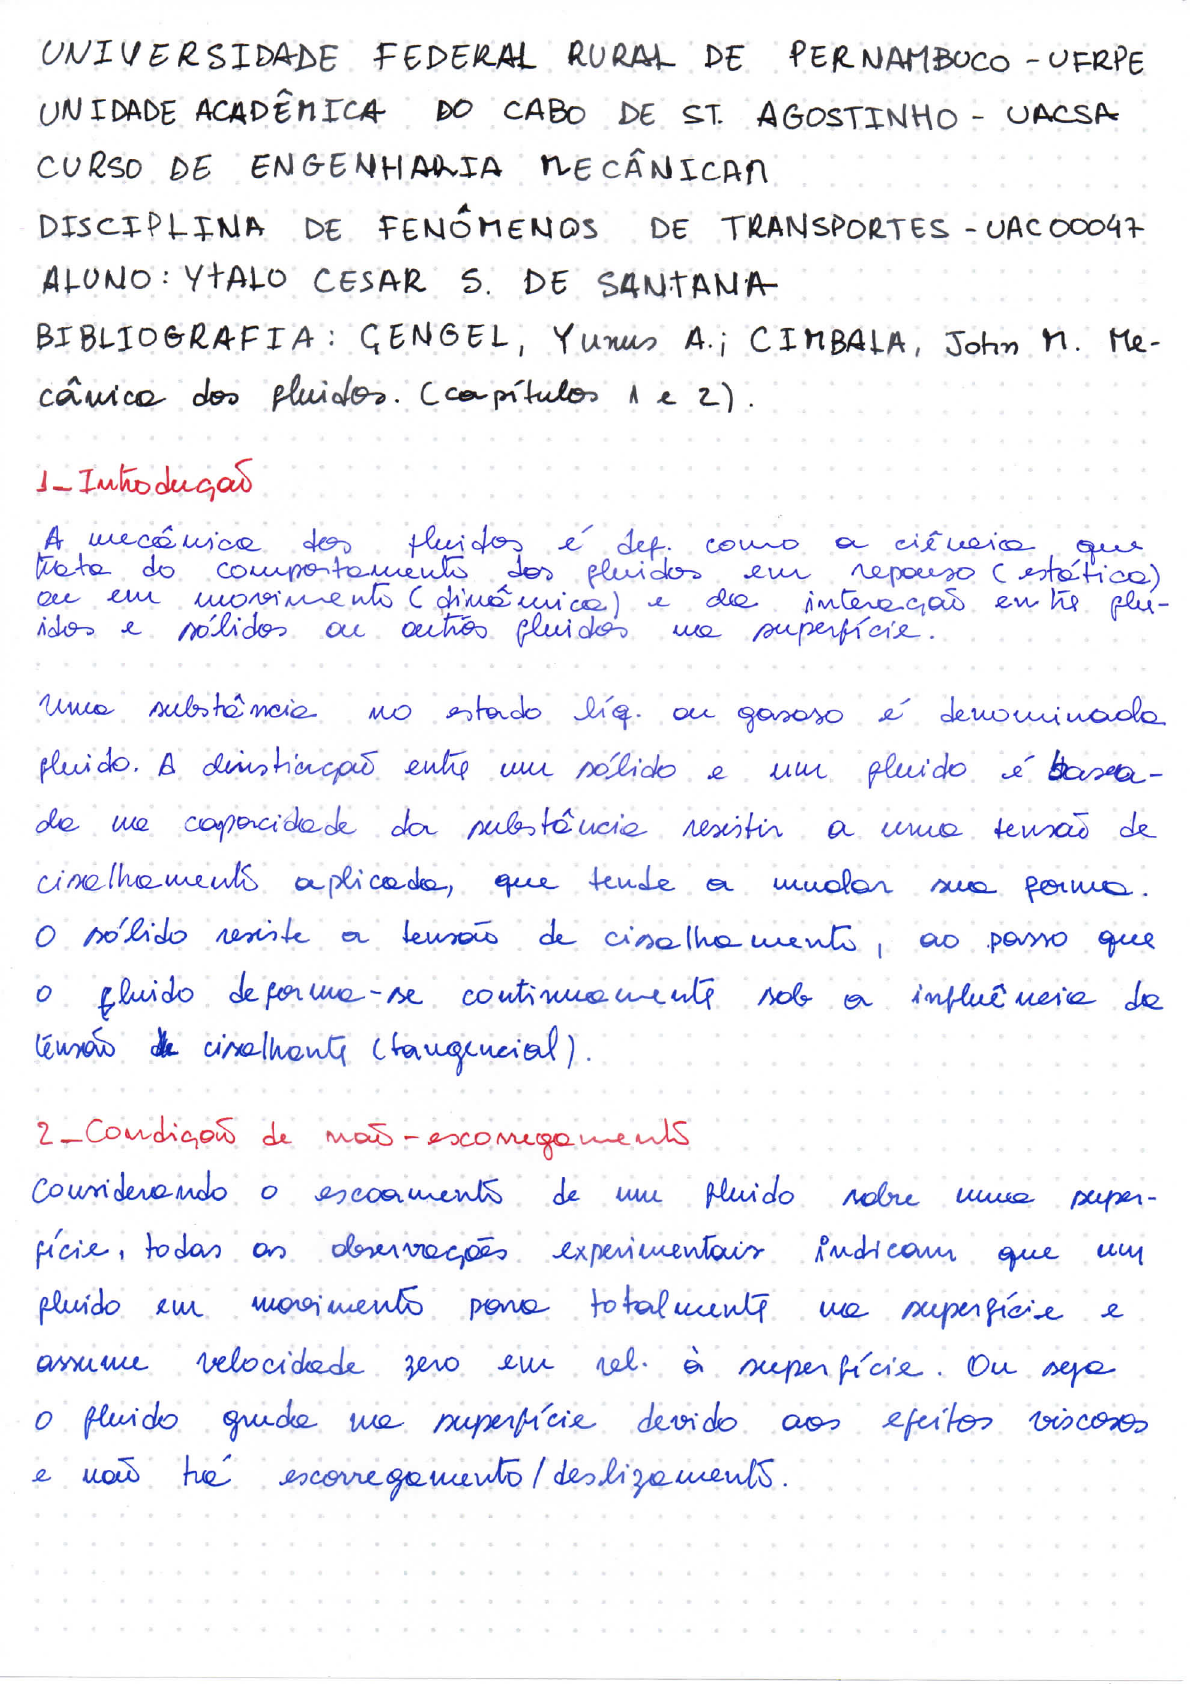 UNIVERSIDADE FEDERAL RURAL DE PERNAMBUCO - UFRPE
UNIDADE ACADÊMICA DO CABO DE ST. AGOSTINHO - UACSA
CURSO DE ENGENHARIA MECÂNICAM
DISCIPLINA DE FENÔMENOS DE TRANSPORTES - UAC00047
ALUNO: YTALO CESAR S. DE SANTANA
BIBLIOGRAFIA: ÇENGEL, Yunus A.; CIMBALA, John M. Me-
cânica dos fluidos. (capítulos 1 e 2).
1_Introdução
A mecânica dos fluidos é def. como a ciência que
trata do comportamento dos fluidos em repouso (estática)
ou em movimento (dinâmica) e da interação entre flu-
idos e sólidos ou outros fluidos na superfície.
Uma substância no estado líq. ou gasoso é denominada
fluido. A dinstinção entre um sólido e um fluido é basea-
da na capacidade da substância resistir a uma tensão de
cisalhamento aplicada, que tende a mudar sua forma.
O sólido resiste a tensão de cisalhamento, ao passo que
o fluido deforma-se continuamente sob a influência da
tensão cisalhante (tangencial).
2_Condição de não-escorregamento
Considerando o escoamento de um fluido sobre uma super-
fície, todas as observações experimentais indicam que um
fluido em movimento para totalmente na superfície e
assume velocidade zero em rel. à superfície. Ou seja
o fluido gruda na superfície devido aos efeitos viscosos
e não há escorregamento/deslizamento.